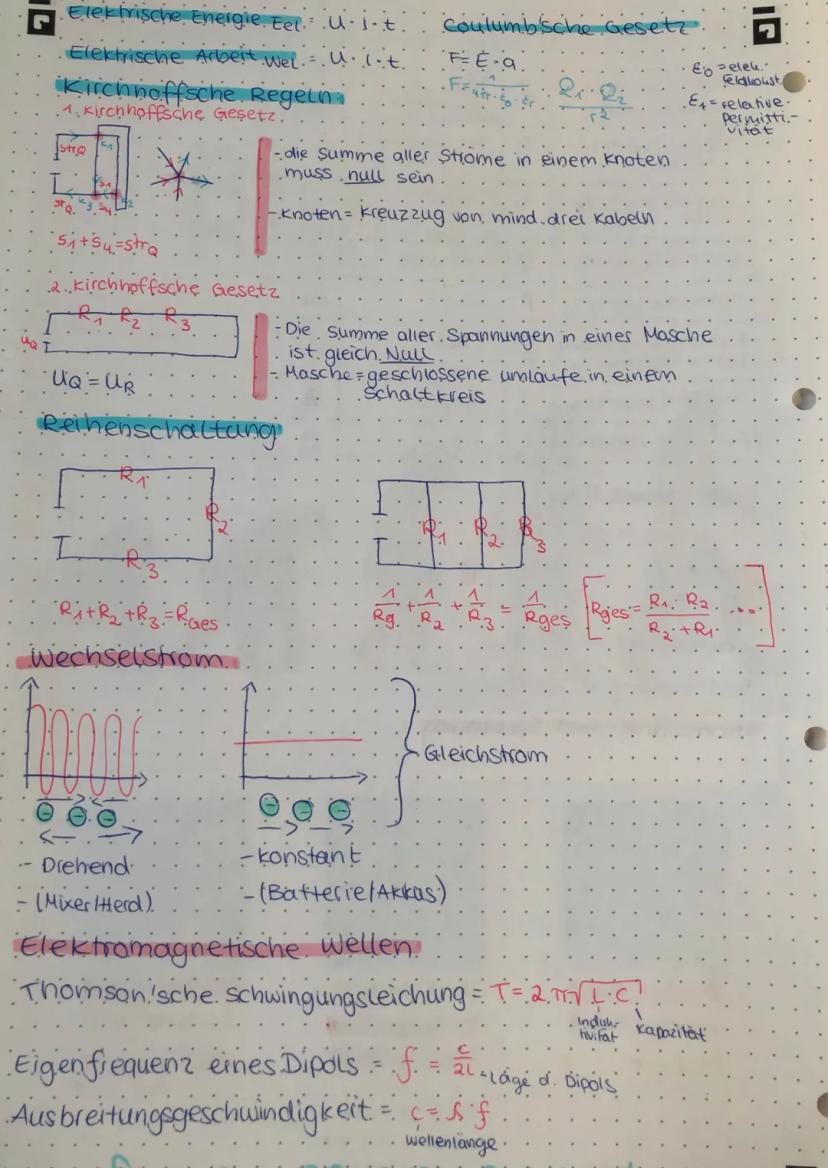 Elektrische Energie Eel. = U · I · t
Coulumb'sche Gesetz
Elektrische Arbeit Wel. = U · I · t
F = E · q
F = 1/(4π · ε0 · εr) · (Q1 · Q2)/r²
ε0 = elek. Feldkonst.
εr = relative Permitti-
vität
Kirchhoffsche Regeln
1. Kirchhoffsche Gesetz
StrQ
StrQ
S1
S4
S1 + S4 = StrQ
- die Summe aller Ströme in einem Knoten
muss null sein
- Knoten = Kreuzzug von mind. drei Kabeln
2. Kirchhoffsche Gesetz
R1 R2 R3
UQ
UQ = UR
- Die Summe aller Spannungen in eines Masche
ist gleich Null
- Masche = geschlossene umläufe in einem
Schaltkreis
Reihenschaltung
R1
R2
R3
R1
R2
R3
R1 + R2 + R3 = RGes
1/Rg. + 1/R2 + 1/R3 = 1/Rges [Rges = (R1 · R2)/(R2 + R1) ...]
Wechselstrom
Gleichstrom
- Drehend
- (Mixer/Herd)
- Konstant
- (Batterie/Akkus)
Elektromagnetische Wellen
Thomson'sche Schwingungsleichung = T = 2π√(L · C)
Induk-
tivität
Kapazität
Eigenfrequenz eines Dipols = f = c/2l - Läge d. Dipols
Ausbreitungsgeschwindigkeit = c = λ · f
Wellenlänge